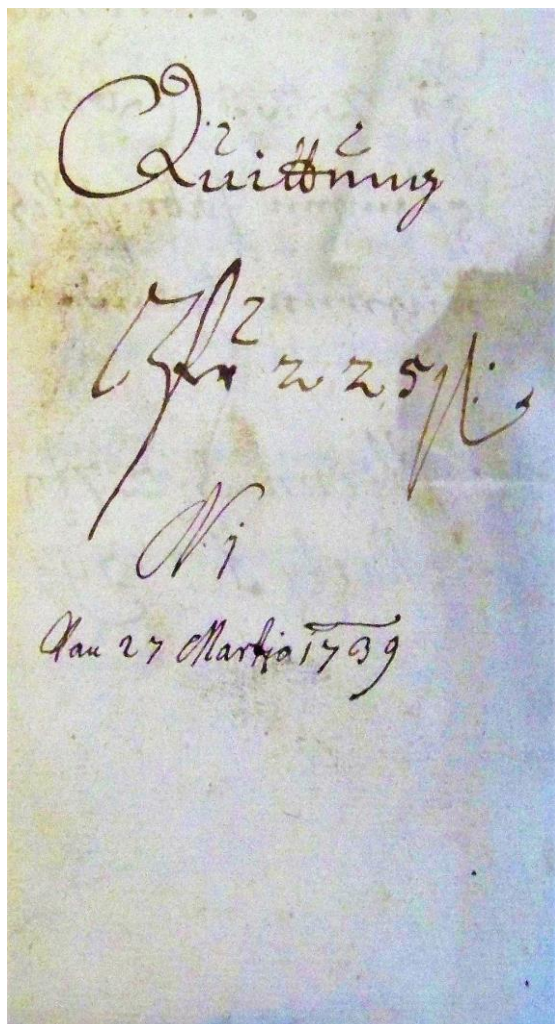 Quittung
Pr 225 fl:
N. j
Dan 27 Martjo 1739